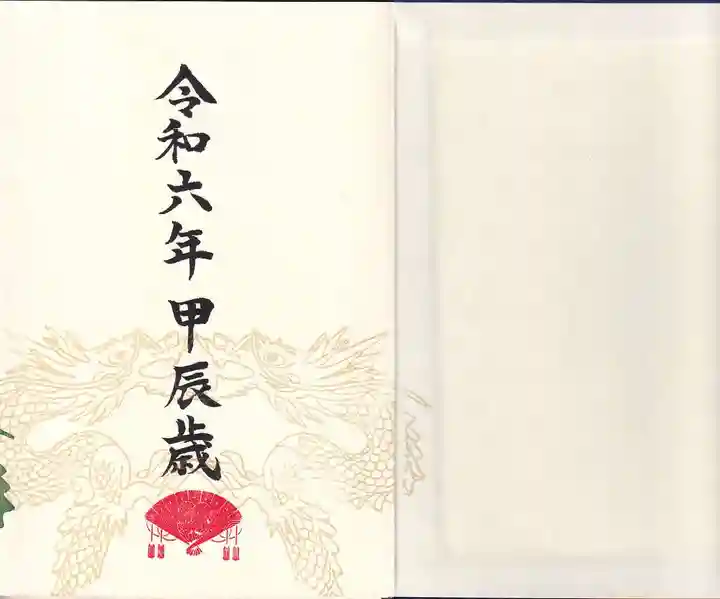 令和六年甲辰歳